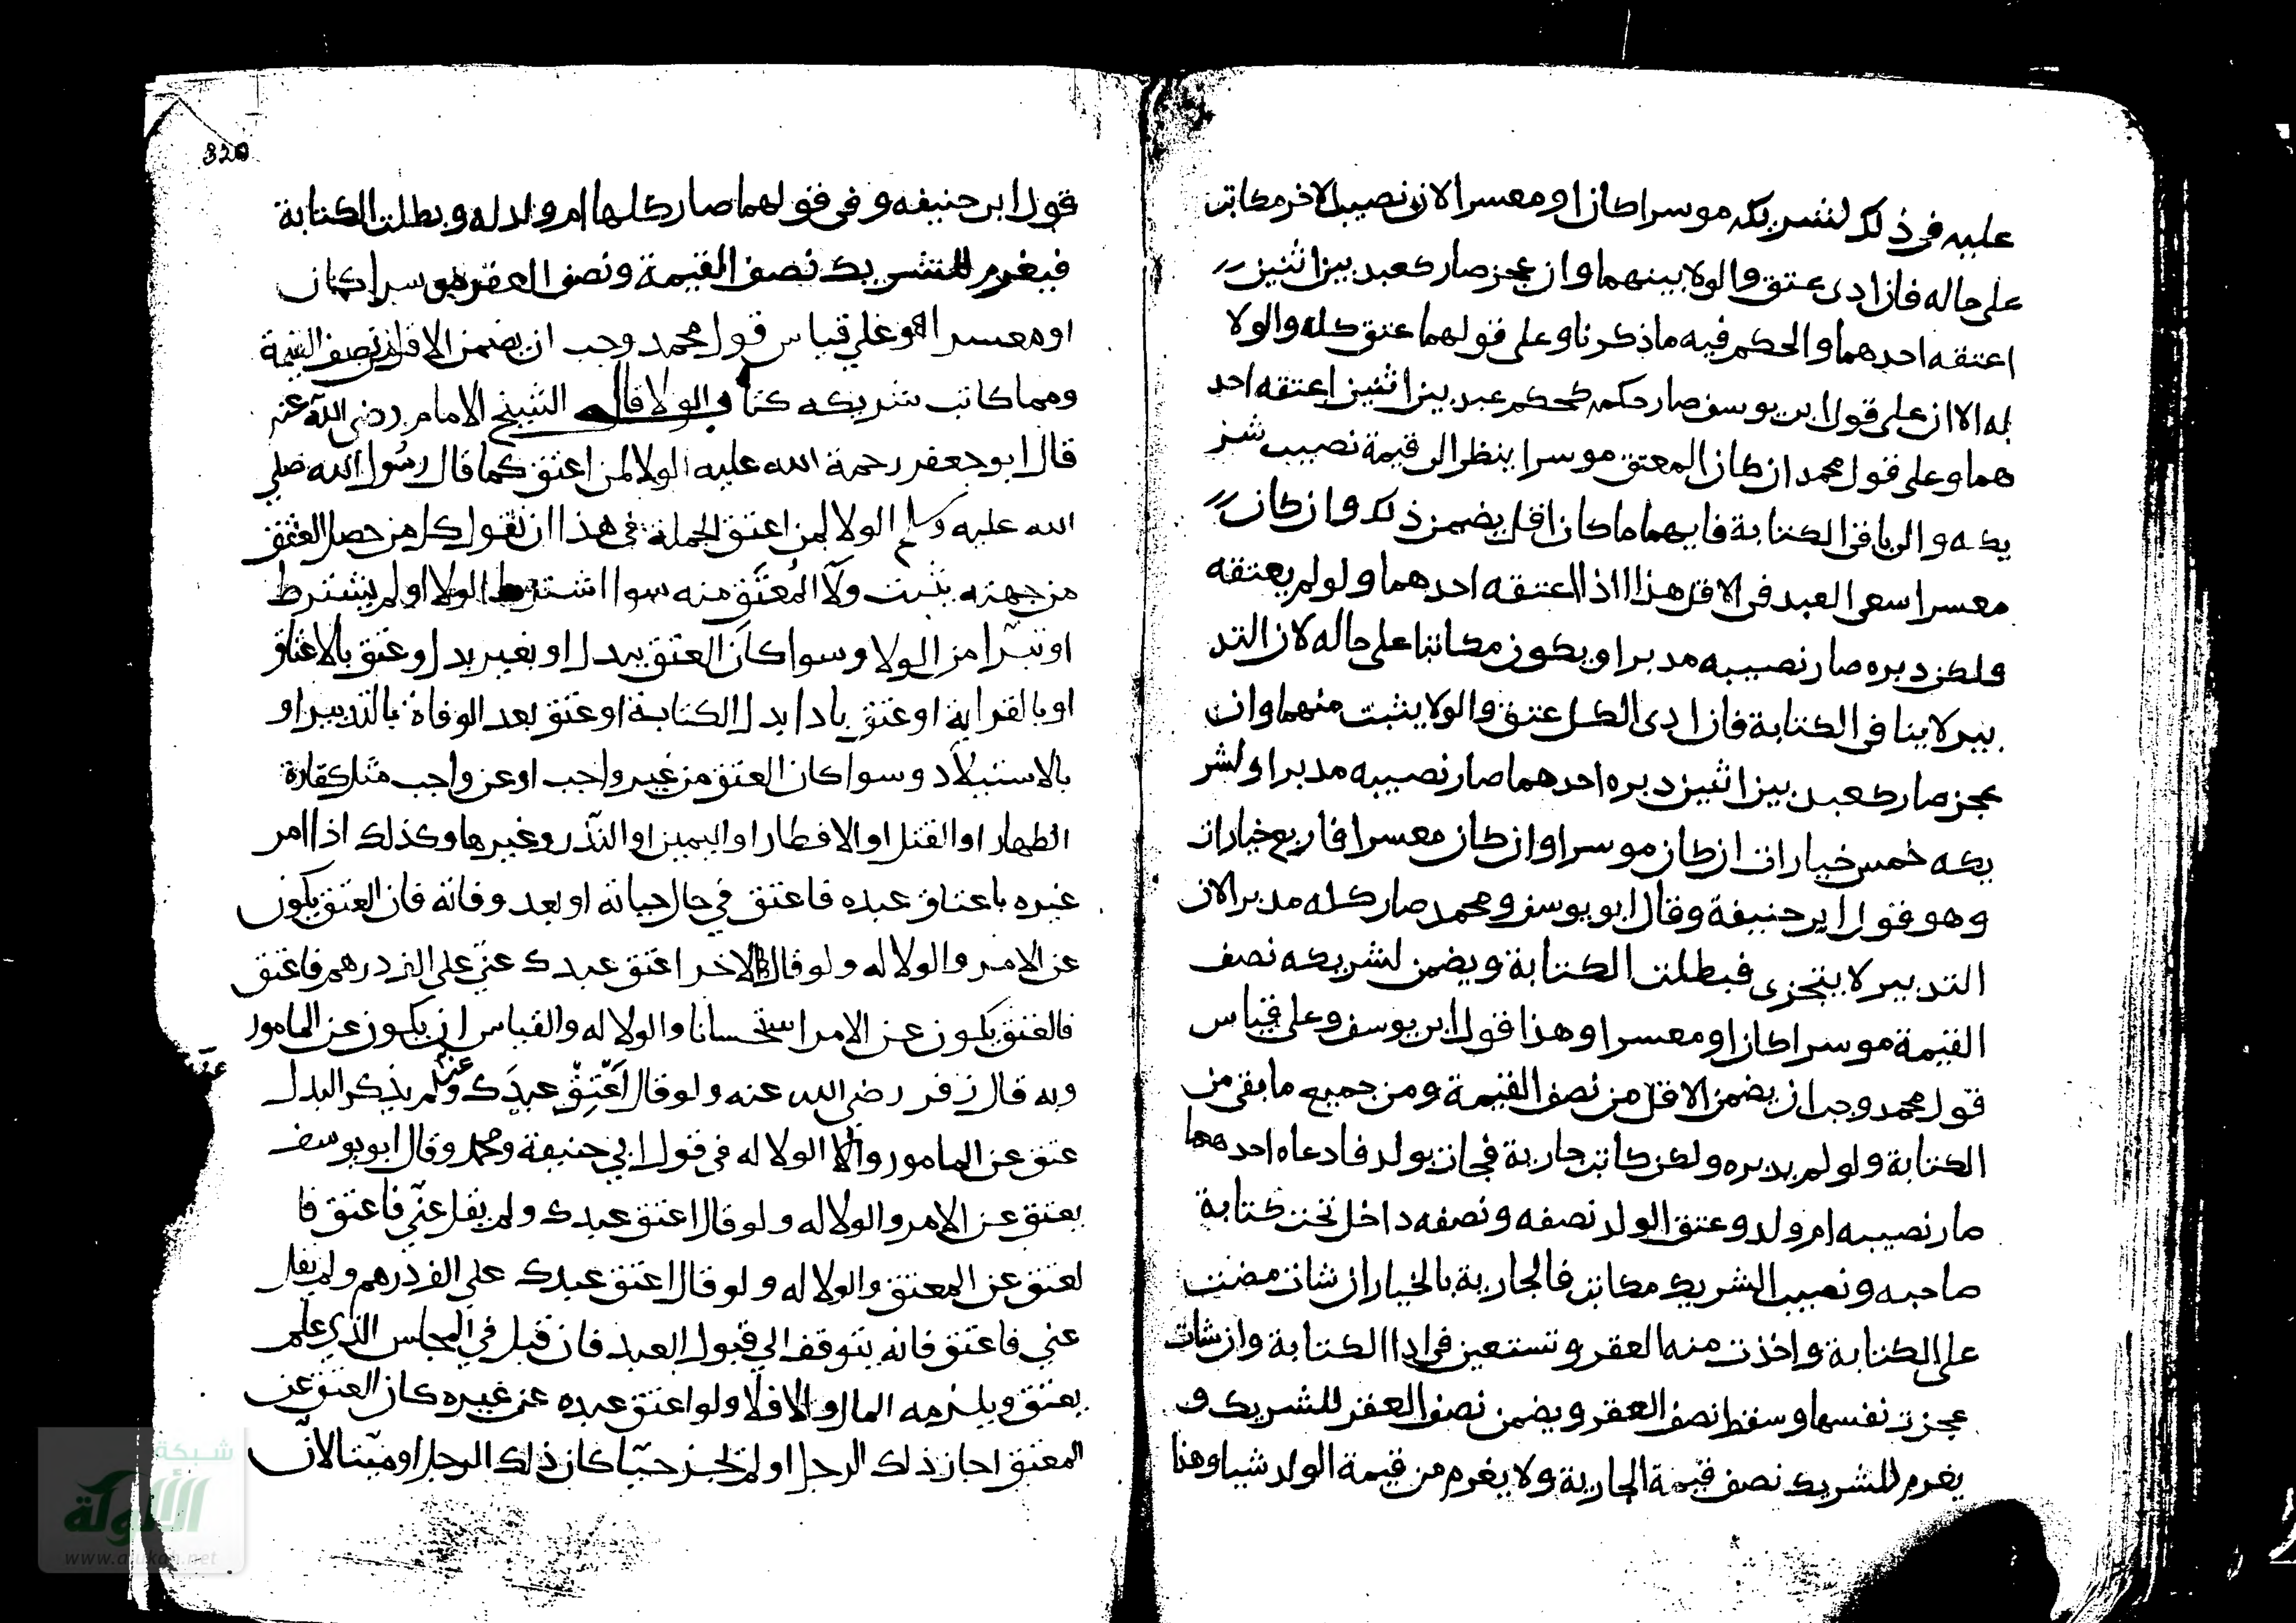 عليه في ذلك لشريكه موسرا كان او معسرا لان نصيب الاخر مكاتب
على حاله فان ادى عتق والولا بينهما وان عجز صار كعبد بين اثنين
اعتقه احدهما والحكم فيه ما ذكرنا وعلى قولهما عتق كله والولا
له الا ان على قول ابي يوسف صار حكمه كحكم عبد بين اثنين اعتقه احد
هما وعلى قول محمد ان كان المعتق موسرا ينظر الى قيمة نصيب شر
يكه والى باقي الكتابة فايهما ما كان اقل يضمن ذلك وان كان
معسرا سعى العبد في الاقل هذا اذا اعتقه احدهما ولو لم يعتقه
ولكن دبره صار نصيبه مدبرا ويكون مكاتبا على حاله لان التد
بير لا ينافي الكتابة فان ادى الكل عتق والولا يثبت منهما وان
عجز صار كعبد بين اثنين دبره احدهما صار نصيبه مدبرا ولشر
يكه خمس خيارات ان كان موسرا وان كان معسرا فاربع خيارات
وهو قول ابي حنيفة وقال ابو يوسف ومحمد صار كله مدبرا لان
التدبير لا يتجزى فبطلت الكتابة ويضمن لشريكه نصف
القيمة موسرا كان او معسرا وهذا قول ابي يوسف وعلى قياس
قول محمد وجب ان يضمن الاقل من نصف القيمة ومن جميع ما بقي من
الكتابة ولو لم يدبره ولكن كاتب جارية فجات بولد فادعاه احدهما
صار نصيبه ام ولد وعتق الولد نصفه ونصفه داخل تحت كتابة
صاحبه ونصيب الشريك مكاتب فالجارية بالخيار ان شات مضت
على الكتابة واخذت منه العقر وتستعين في ادا الكتابة وان شات
عجزت نفسها وسقط نصف العقر ويضمن نصف العقر للشريك و
يغرم للشريك نصف قيمة الجارية ولا يغرم من قيمة الولد شيا وهذا
320
قول ابي حنيفه وفي قولهما صار كلها ام ولد له وبطلت الكتابة
فيغرم للشريك نصف القيمة ونصف العقر موسرا كان
او معسرا وعلى قياس قول محمد وجب ان يضمن الاقل من نصف القيمة
ومما كاتب شريكه كتاب الولا قال الشيخ الامام رضي الله عنه
قال ابو جعفر رحمة الله عليه الولا لمن اعتق كما قال رسول الله صلي
الله عليه وسلم الولا لمن اعتق الجملة في هذا ان نقول كل من حصل العتق
من جهته يثبت ولآ المُعتَق منه سوا اشترط الولا او لم يشترط
او تبرّا من الولا وسوا كان العتق ببدل او بغير بدل وعتق بالاعتاق
او بالقرابة او عتق بادا بدل الكتابة او عتق بعد الوفاة بالتدبير او
بالاستيلاد وسوا كان العتق من غير واجب او عن واجب مثل كفارة
الظهار او القتل او الافطار او اليمين او النذر وغيرها وكذلك اذا امر
غيره باعتاق عبده فاعتق في حال حياته او بعد وفاته فان العتق يكون
عن الامر والولا له ولو قال لاخر اعتق عبدك عني على الف درهم فاعتق
فالعتق يكون عن الامر استحسانا والولا له والقياس ان يكون عن المامور
وبه قال زفر رضي الله عنه ولو قال اَعتِق عبدَك عني ولم يذكر البدل
عتق عن المامور والولا له في قول ابي حنيفة ومحمد وقال ابو يوسف
يعتق عن الامر والولا له ولو قال اعتق عبدك ولم يقل عنّي فاعتق فا
لعتق عن المعتق والولا له ولو قال اعتق عبدك على الف درهم ولم يقل
عني فاعتق فانه يتوقف الى قبول العبد فان قبل في المجلس الذي علم
يعتق ويلزمه المال والا فلا ولو اعتق عبده عن غيره كان العتق عن
المعتق اجاز ذلك الرجل او لم يجز حيّا كان ذلك الرجل او ميّتا لانّ
شبكة
الألوكة
www.alukah.net